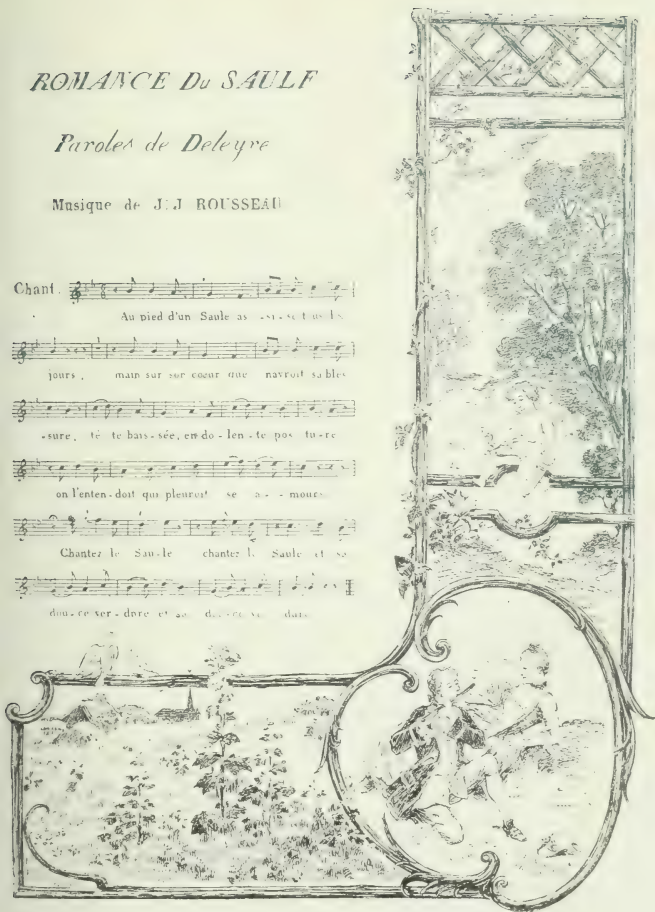 ROMANCE Du SAULE
Paroles de Deleyre
Musique de J. J ROUSSEAU
Chant.
Au pied d'un Saule as -si-se tous les
jours, main sur sur coeur que navroit sa bles
-sure, tê te bais-sée, en do-len-te pos tu-re
on l'enten-doit qui pleuroit se a--mours
Chantez le Sau-le chantez le Saule et sa
dou-ce ver-dure et sa dou-ce ver dure